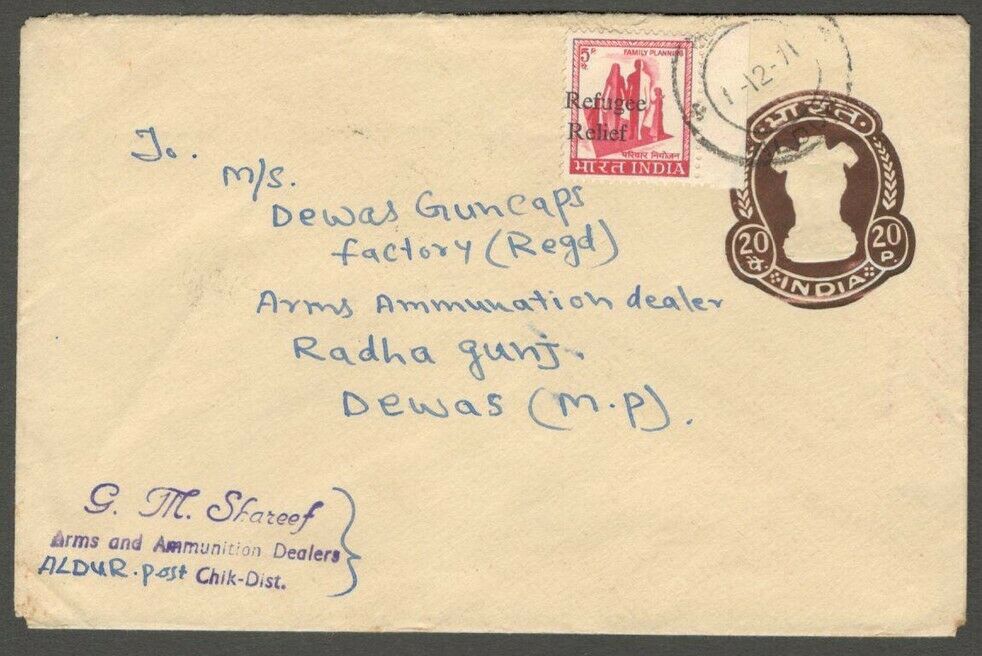 5 P
पै.
FAMILY PLANNING
Refugee
Relief
परिवार नियोजन
भारत INDIA
1-12-71
भारत
20 पै.
20 P.
INDIA
To.
M/s.
Dewas Guncaps
factory (Regd)
Arms Ammunation dealer
Radha gunj.
Dewas (M.P).
G. M. Shareef
Arms and Ammunition Dealers
ALDUR. post Chik-Dist.